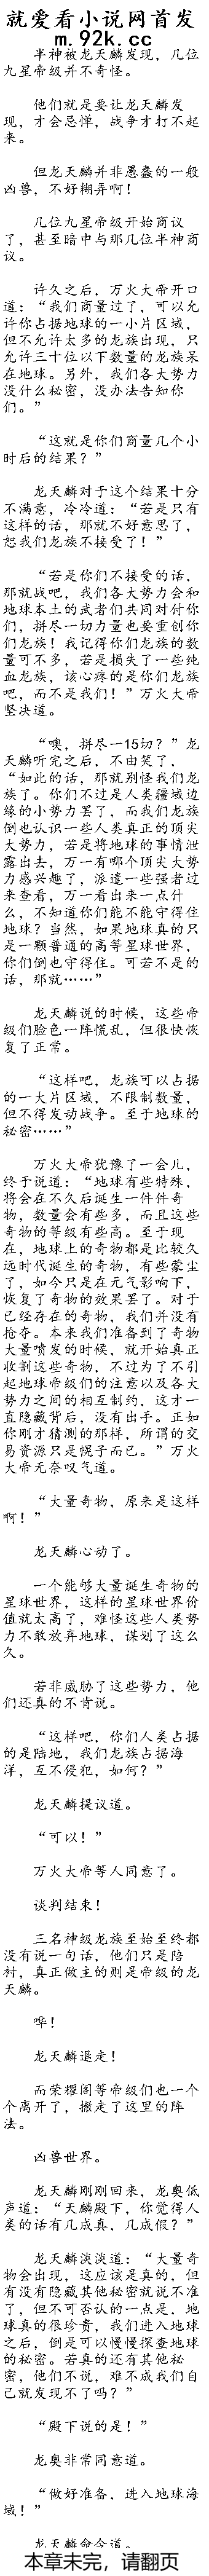 就爱看小说网首发
m.92k.cc
半神被龙天麟发现，几位
九星帝级并不奇怪。
他们就是要让龙天麟发
现，才会忌惮，战争才打不起
来。
但龙天麟并非愚蠢的一般
凶兽，不好糊弄啊！
几位九星帝级开始商议
了，甚至暗中与那几位半神商
议。
许久之后，万火大帝开口
道：“我们商量过了，可以允
许你占据地球的一小片区域，
但不允许太多的龙族出现，只
允许三十位以下数量的龙族呆
在地球。另外，我们各大势力
没什么秘密，没办法告知你
们。”
“这就是你们商量几个小
时后的结果？”
龙天麟对于这个结果十分
不满意，冷冷道：“若是只有
这样的话，那就不好意思了，
恕我们龙族不接受了！”
“若是你们不接受的话，
那就战吧，我们各大势力会和
地球本土的武者们共同对付你
们，拼尽一切力量也要重创你
们龙族！我记得你们龙族的数
量可不多，若是损失了一些纯
血龙族，该心疼的是你们龙族
吧，而不是我们！”万火大帝
坚决道。
“噢，拼尽一15切？”龙
天麟听完之后，不由笑了，
“如此的话，那就别怪我们龙
族了。你们不过是人类疆域边
缘的小势力罢了，而我们龙族
倒也认识一些人类真正的顶尖
大势力，若是将地球的事情泄
露出去，万一有哪个顶尖大势
力感兴趣了，派遣一些强者过
来查看，万一看出来一点什
么，不知道你们能不能守得住
地球？当然，如果地球真的只
是一颗普通的高等星球世界，
你们倒也守得住。可若不是的
话，那就……”
龙天麟说的时候，这些帝
级们脸色一阵慌乱，但很快恢
复了正常。
“这样吧，龙族可以占据
的一大片区域，不限制数量，
但不得发动战争。至于地球的
秘密……”
万火大帝犹豫了一会儿，
终于说道：“地球有些特殊，
将会在不久后诞生一件件奇
物，数量会有些多，而且这些
奇物的等级有些高。至于现
在，地球上的奇物都是比较久
远时代诞生的奇物，有些蒙尘
了，如今只是在元气影响下，
恢复了奇物的效果罢了。对于
已经存在的奇物，我们并没有
抢夺。本来我们准备到了奇物
大量喷发的时候，就开始真正
收割这些奇物，不过为了不引
起地球帝级们的注意以及各大
势力之间的相互制约，这才一
直隐藏背后，没有出手。正如
你刚才猜测的那样，所谓的交
易资源只是幌子而已。”万火
大帝无奈叹气道。
“大量奇物，原来是这样
啊！”
龙天麟心动了。
一个能够大量诞生奇物的
星球世界，这样的星球世界价
值就太高了，难怪这些人类势
力不敢放弃地球，谋划了这么
久。
若非威胁了这些势力，他
们还真的不肯说。
“这样吧，你们人类占据
的是陆地，我们龙族占据海
洋，互不侵犯，如何？”
龙天麟提议道。
“可以！”
万火大帝等人同意了。
谈判结束！
三名神级龙族至始至终都
没有说一句话，他们只是陪
衬，真正做主的则是帝级的龙
天麟。
哗！
龙天麟退走！
而荣耀阁等帝级们也一个
个离开了，撤走了这里的阵
法。
凶兽世界。
龙天麟刚刚回来，龙奥低
声道：“天麟殿下，你觉得人
类的话有几成真，几成假？”
龙天麟淡淡道：“大量奇
物会出现，这应该是真的，但
有没有隐藏其他秘密就说不准
了，但不可否认的一点是，地
球真的很珍贵，我们进入地球
之后，倒是可以慢慢探查地球
的秘密。若真的还有其他秘
密，他们不说，难不成我们自
己就发现不了吗？”
“殿下说的是！”
龙奥非常同意道。
“做好准备，进入地球海
域！”
龙天麟命令道。
本章未完，请翻页